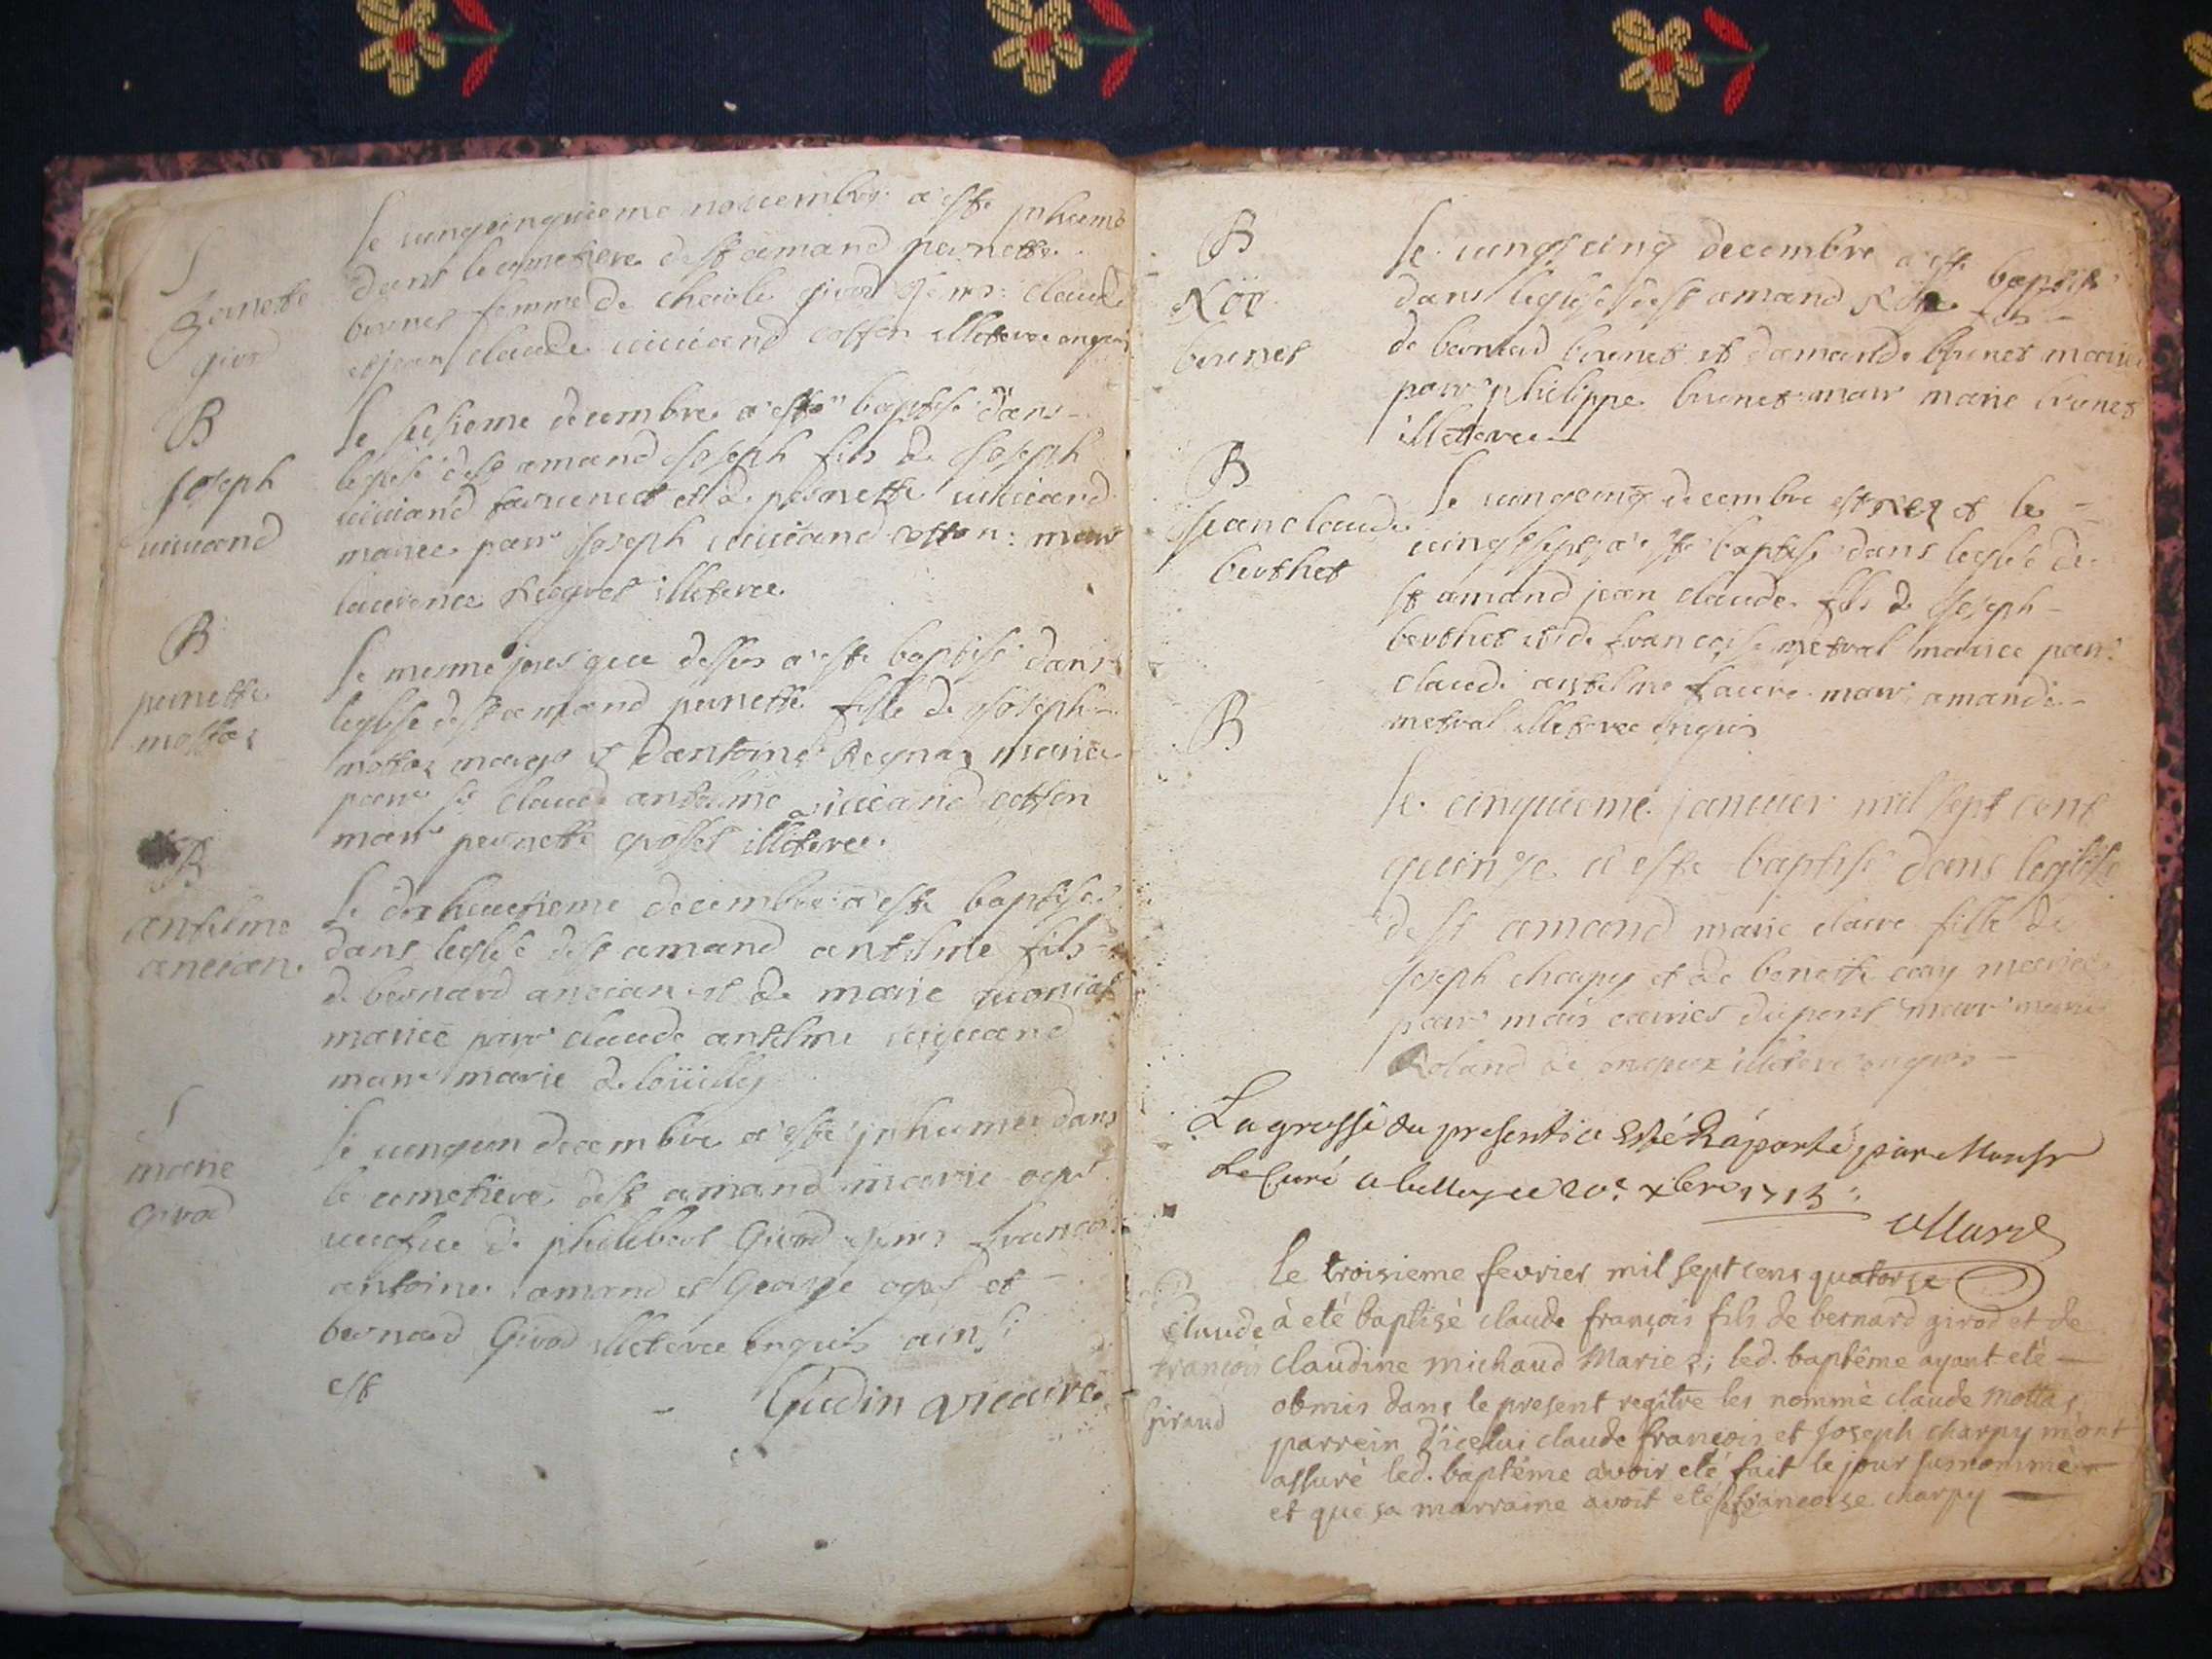 S
Pernette
girod
le vingcinquieme novembre a este inhumé
dans le cimetiere de st amand pernette
brunet femme de charle girod pns: claude
et jean claude vuiuand cotton illeteree enquis
B
Joseph
vuiuand
le sesieme decembre a este baptisé dans
leglise de st amand Joseph fils de Joseph
vuiuand et de pernette vuiuand
mariee parr Joseph vuiuand cotton: marr
laurence illeteree
B
pernette
mottaz
le mesme jour que dessus a este baptisé dans
leglise de st amand pernette fille de Joseph
mottaz et dantoine Reynaz mariee
parr sr claude antelme vuiuand cotton
marr pernette grosset illeteree
B
antelme
ancian
le dixhuictieme decembre a este baptisé
dans leglise de st amand antelme fils
de bernard ancian et de marie
mariee parr claude antelme vuiuand
marr marie
S
marie
girod
le vingun decembre a este inhumer dans
le cimetiere de st amand marie
veufue de philibert Girod pns francois
antoine amand et George et
bernard Girod illeteree enquis ainsi
est
Gudin vicaire
B
Nöe
brunet
le vingcinq decembre a este baptisé
dans leglise de st amand Nöe fils
de bernard brunet et damande brunet mariee
parr philippe brunet marr marie brunet
illetteree
B
jean claude
berthet
le vingcinq decembre est nez et le
vingsept a este baptisé dans leglise de
st amand jean claude fils de Joseph
berthet et de francoise metral mariee parr
claude antelme faure marr amande
metral illeteree enquis
B
le cinquieme januier mil sept cent
quinze a este baptisé dans leglise
de st amand marie claire fille de
joseph charpy et de benoite mariee
parr dupont marr marie
Roland de illeteré enquis
La grosse du present a esté Raporté par Monsr
Le Curé a belley ce 20e xbre 1715
B
Claude
francois
Giraud
le troisieme fevrier mil sept cens quatorse
à eté baptisè claude françois fils de bernard girod et de
claudine michaud Mariez; led. baptême ayant eté
obmis dans le present regître les nommè claude Mottaz
parrein d'icelui claude françois et Joseph charpy m'ont
assurè led. baptême avoir eté fait le jour surnommè
et que sa marraine avoit eté francoise charpy